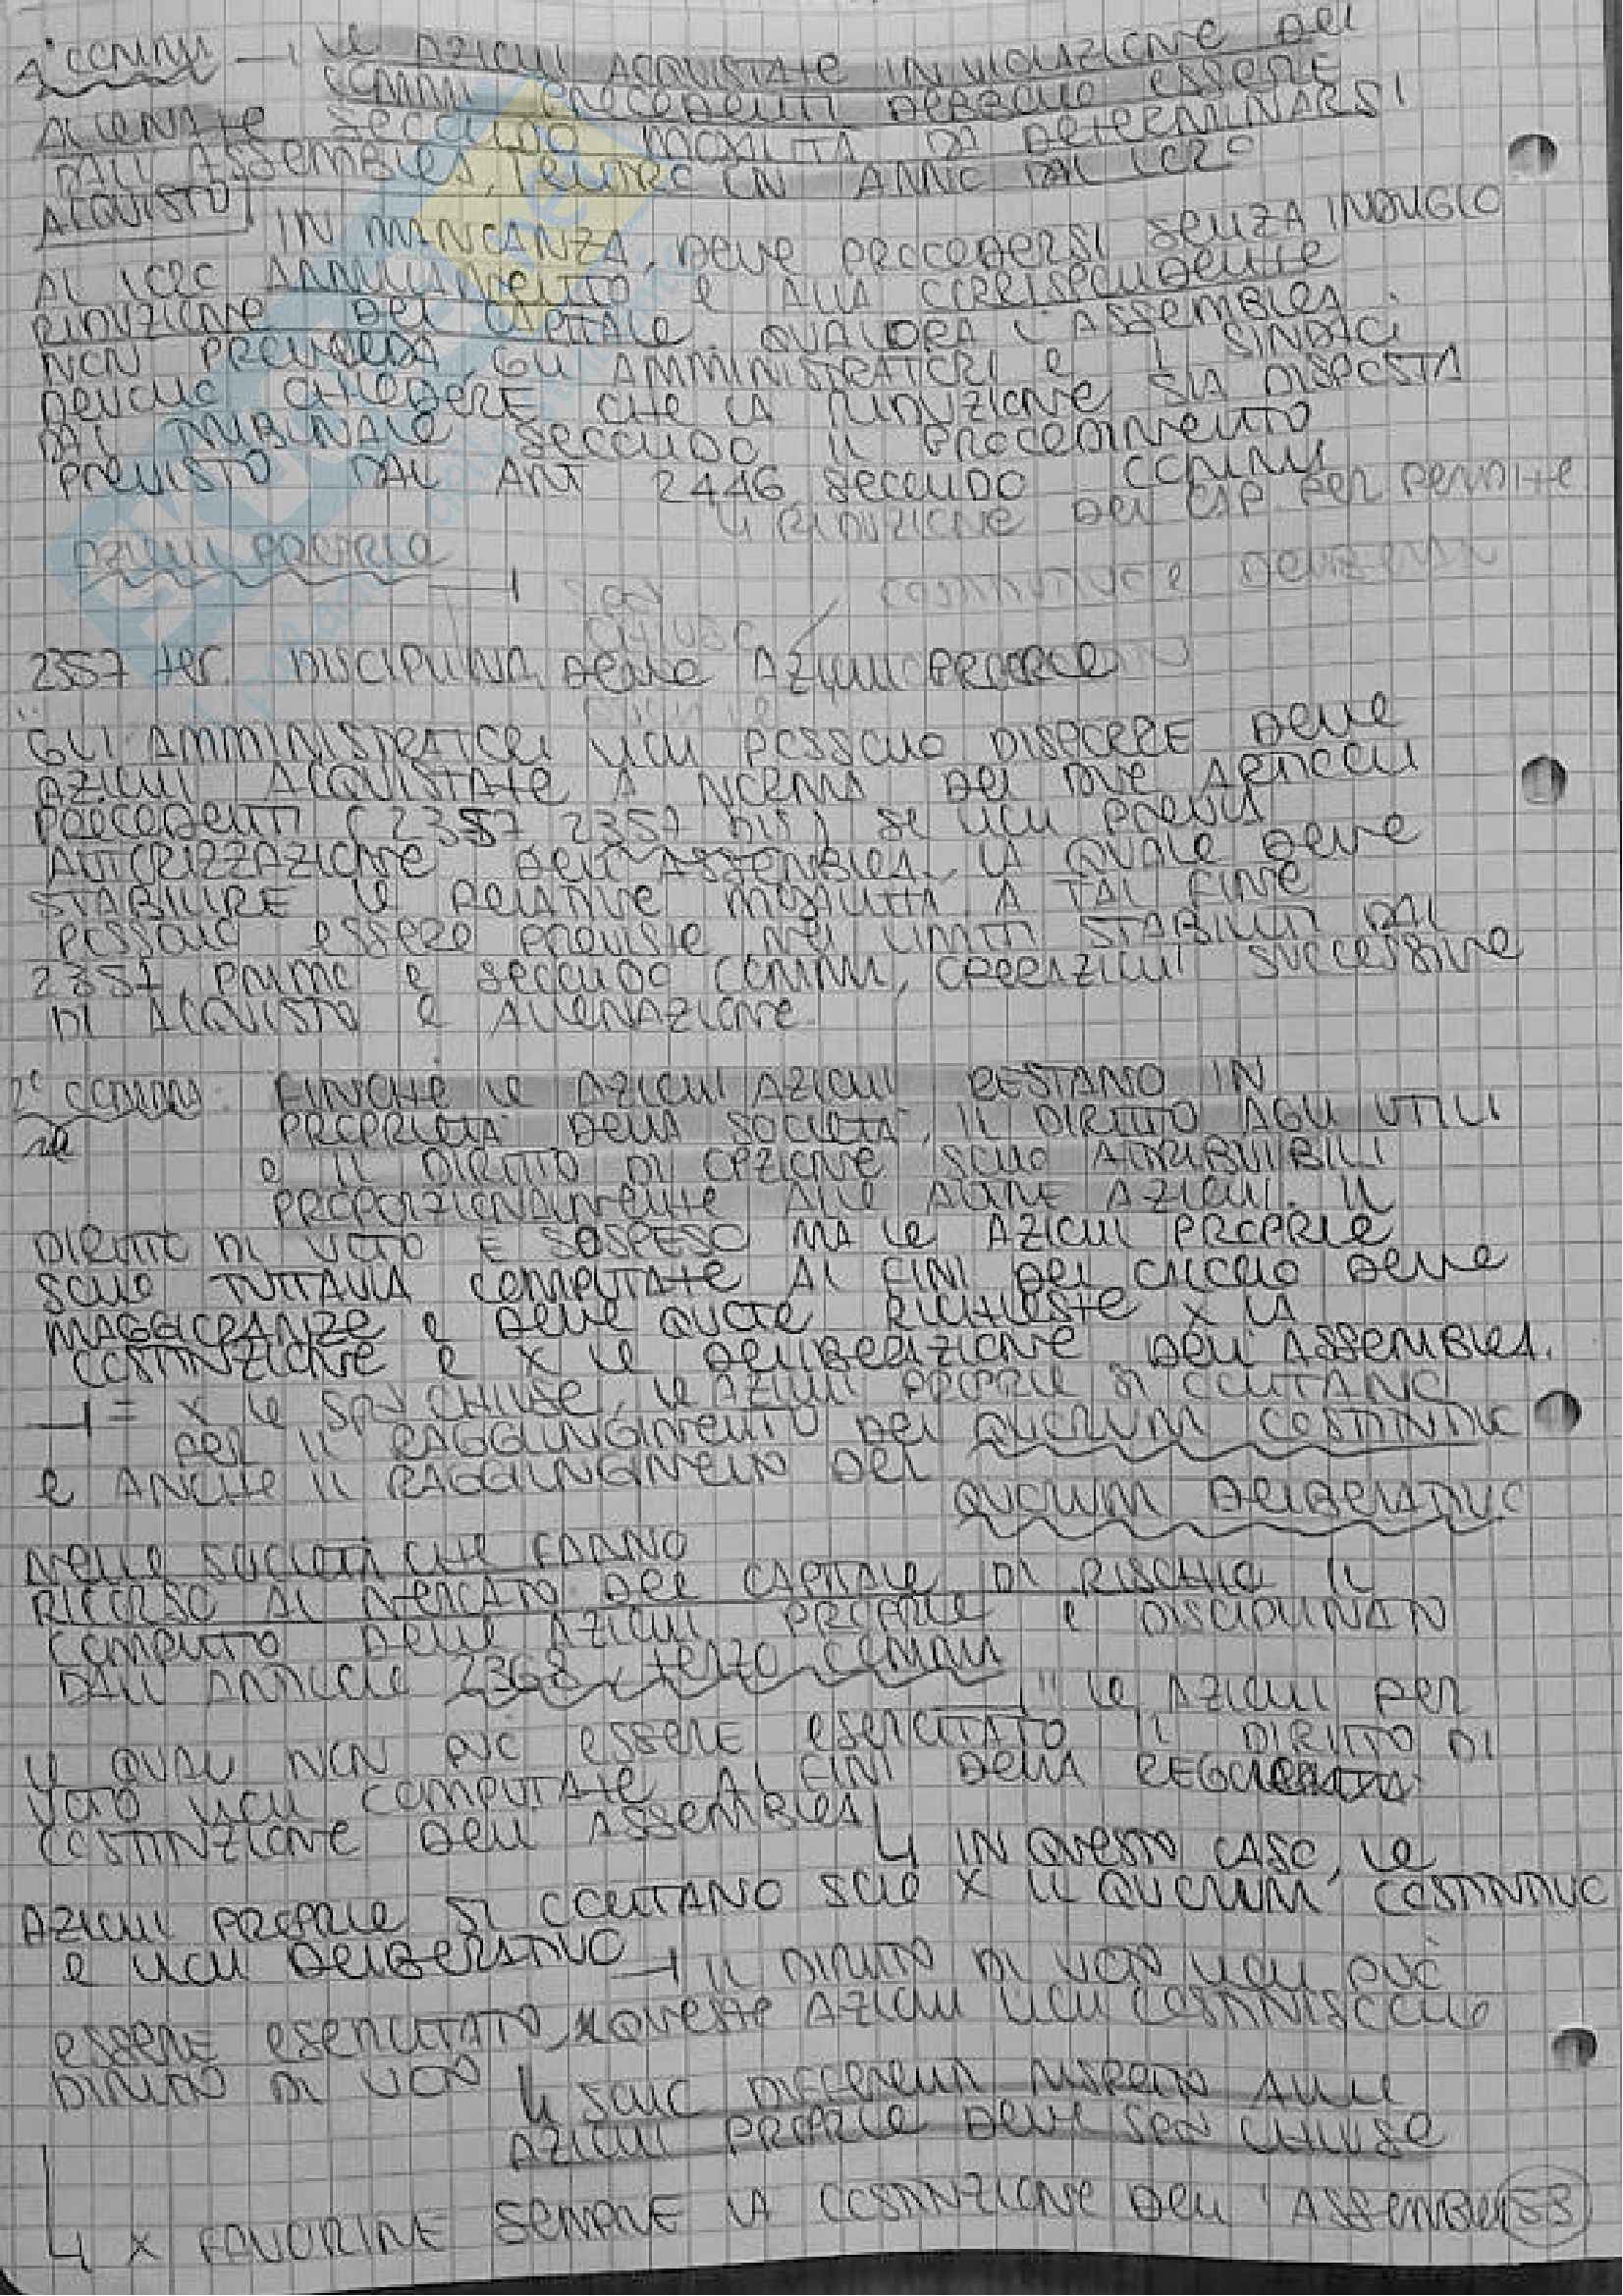 4° COMMA → LE AZIONI ACQUISTATE IN VIOLAZIONE DEI
COMMI PRECEDENTI DEBBONO ESSERE
ALIENATE SECONDO MODALITÀ DA DETERMINARSI
DALL'ASSEMBLEA, ENTRO UN ANNO DAL LORO
ACQUISTO. IN MANCANZA, DEVE PROCEDERSI SENZA INDUGIO
AL LORO ANNULLAMENTO E ALLA CORRISPONDENTE
RIDUZIONE DEL CAPITALE. QUALORA L'ASSEMBLEA
NON PROVVEDA, GLI AMMINISTRATORI E I SINDACI
DEVONO CHIEDERE CHE LA RIDUZIONE SIA DISPOSTA
DAL TRIBUNALE SECONDO IL PROCEDIMENTO
PREVISTO DAL ART 2446 SECONDO COMMA
↳ RIDUZIONE DEL CAP. PER PERDITE
AZIONI PROPRIE → SPA
CHIUSE
COSTITUTIVO E
2357 ter. DISCIPLINA DELLE AZIONI PROPRIE
GLI AMMINISTRATORI NON POSSONO DISPORRE DELLE
AZIONI ACQUISTATE A NORMA DEI DUE ARTICOLI
PRECEDENTI (2357 2357 BIS) SE NON PREVIA
AUTORIZZAZIONE DELL'ASSEMBLEA, LA QUALE DEVE
STABILIRE LE RELATIVE MODALITÀ. A TAL FINE
POSSONO ESSERE PREVISTE NEI LIMITI STABILITI DAL
2357 PRIMO E SECONDO COMMA, OPERAZIONI SUCCESSIVE
DI ACQUISTO E ALIENAZIONE.
2° COMMA: FINCHÈ LE AZIONI AZIONI RESTANO IN
PROPRIETÀ DELLA SOCIETÀ, IL DIRITTO AGLI UTILI
E IL DIRITTO DI OPZIONE SONO ATTRIBUIBILI
PROPORZIONALMENTE ALLE ALTRE AZIONI. IL
DIRITTO DI VOTO È SOSPESO MA LE AZIONI PROPRIE
SONO TUTTAVIA COMPUTATE AI FINI DEL CALCOLO DELLE
MAGGIORANZE E DELLE QUOTE RICHIESTE X LA
COSTITUZIONE E X LE DELIBERAZIONE DELL'ASSEMBLEA.
→ = X LE SPA CHIUSE, LE AZIONI PROPRIE SI CONTANO
PER IL RAGGIUNGIMENTO DEL QUORUM COSTITUTIVO
E ANCHE IL RAGGIUNGIMENTO DEL
QUORUM DELIBERATIVO
NELLE SOCIETÀ CHE FANNO
RICORSO AL MERCATO DEL CAPITALE DI RISCHIO IL
COMPUTO DELLE AZIONI PROPRIE E DISCIPLINATO
DALL'ARTICOLO 2368, TERZO COMMA
" LE AZIONI PER
LE QUALI NON PUÒ ESSERE ESERCITATO IL DIRITTO DI
VOTO NON COMPUTATE AI FINI DELLA REGOLARE
COSTITUZIONE DELL'ASSEMBLEA
↳ IN QUESTO CASO, LE
AZIONI PROPRIE SI CONTANO SOLO X IL QUORUM COSTITUTIVO
E NON DELIBERATIVO → IL DIRITTO DI VOTO NON PUÒ
ESSERE ESERCITATO, X QUESTE AZIONI NON COSTITUISCONO
DIRITTO DI VOTO
↳ SONO DIFFERENTI RISPETTO ALLE
AZIONI PROPRIE DELLE SPA CHIUSE
↳ X FAVORIRE SEMPRE LA COSTITUZIONE DELL'ASSEMBLEA
53